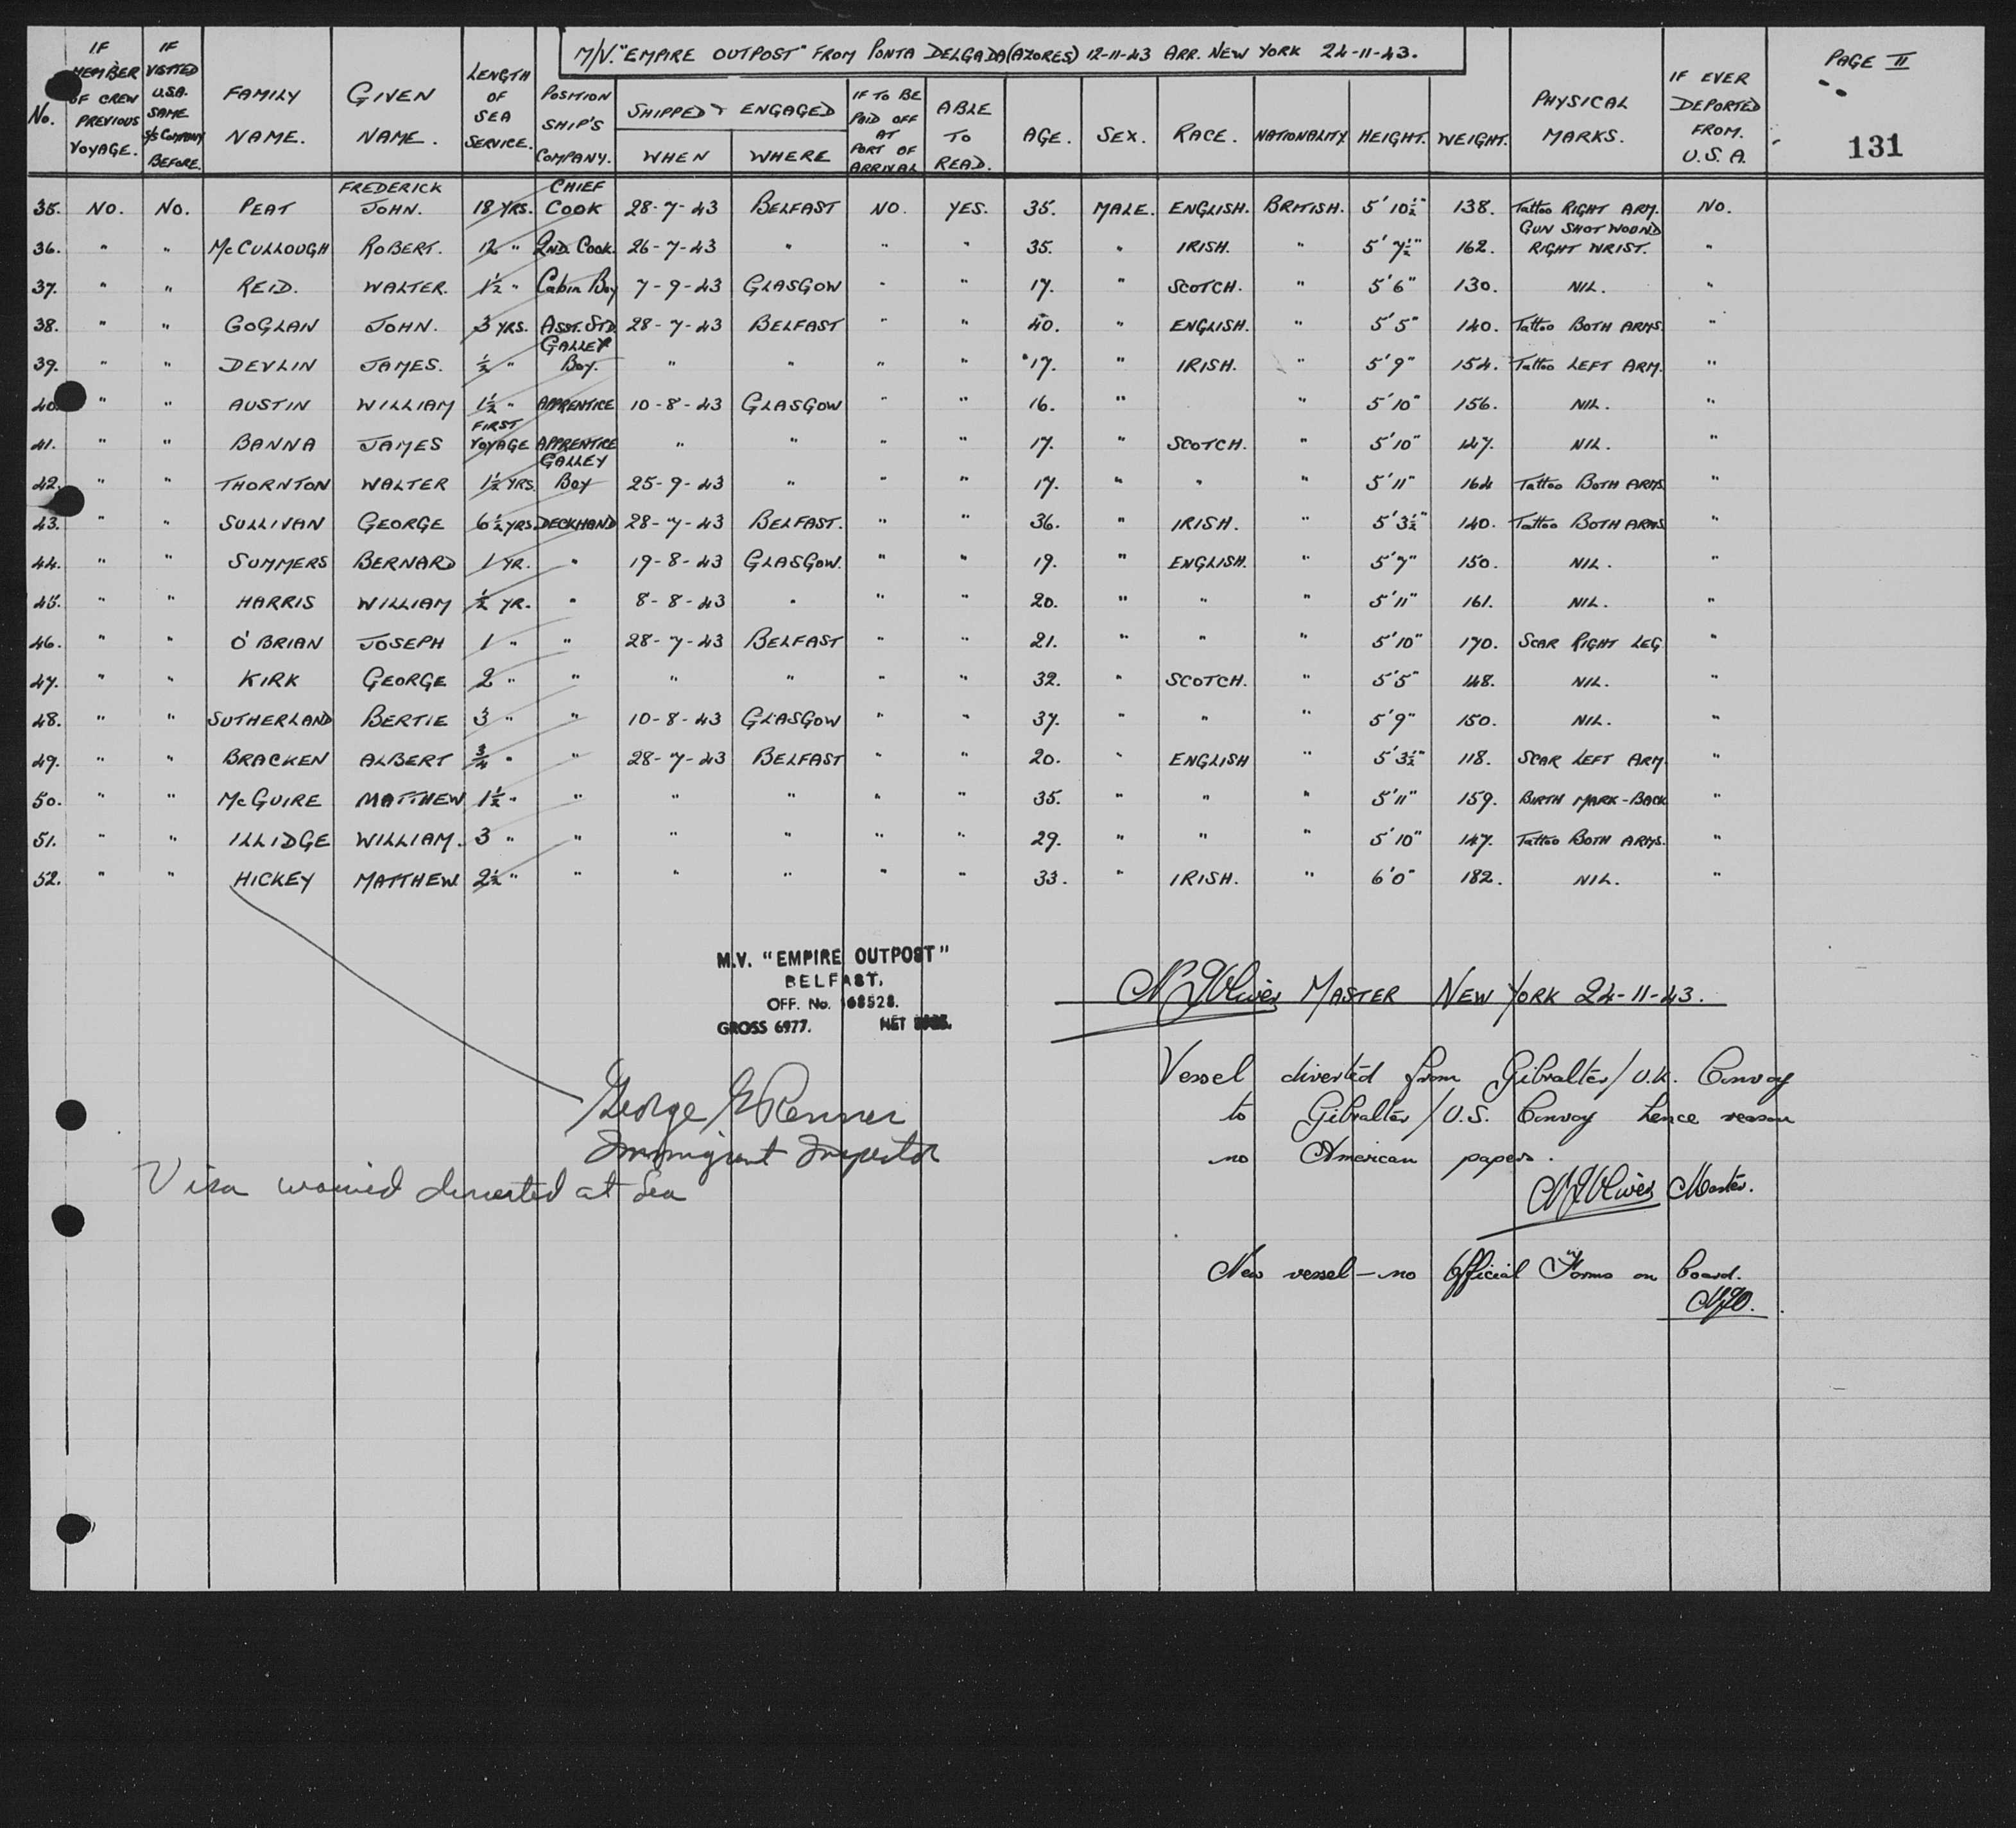 M/V. "EMPIRE OUTPOST" FROM PONTA DELGADA (AZORES) 12-11-43 ARR. NEW YORK 24-11-43.
PAGE II
131
No. IF MEMBER OF CREW PREVIOUS VOYAGE. IF VISITED U.S.A. SAME S/S COMPANY BEFORE. FAMILY NAME. GIVEN NAME. LENGTH OF SEA SERVICE. POSITION SHIP'S COMPANY. SHIPPED & ENGAGED WHEN WHERE IF TO BE PAID OFF AT PORT OF ARRIVAL ABLE TO READ. AGE. SEX. RACE. NATIONALITY HEIGHT. WEIGHT. PHYSICAL MARKS. IF EVER DEPORTED FROM. U.S.A.
35. NO. NO. PEAT FREDERICK JOHN. 18 YRS. CHIEF COOK 28-7-43 BELFAST NO. YES. 35. MALE. ENGLISH. BRITISH. 5' 10½" 138. Tattoo RIGHT ARM. NO.
36. " " McCULLOUGH ROBERT. 12 " 2ND. COOK. 26-7-43 " " " 35. " IRISH. " 5' 7½" 162. GUN SHOT WOUND RIGHT WRIST. "
37. " " REID. WALTER. 1½ " Cabin Boy 7-9-43 GLASGOW " " 17. " SCOTCH. " 5'6" 130. NIL. "
38. " " GOGLAN JOHN. 3 YRS. ASST. STD. 28-7-43 BELFAST " " 40. " ENGLISH. " 5'5" 140. Tattoo BOTH ARMS. "
39. " " DEVLIN JAMES. ½ " GALLEY Boy. " " " " 17. " IRISH. " 5'9" 154. Tattoo LEFT ARM. "
40. " " AUSTIN WILLIAM 1½ " APPRENTICE 10-8-43 GLASGOW " " 16. " " 5'10" 156. NIL. "
41. " " BANNA JAMES FIRST VOYAGE APPRENTICE " " " " 17. " SCOTCH. " 5'10" 147. NIL. "
42. " " THORNTON WALTER 1½ YRS. GALLEY Boy 25-9-43 " " " 17. " " " 5'11" 164 Tattoo BOTH ARMS "
43. " " SULLIVAN GEORGE 6½ YRS. DECKHAND 28-7-43 BELFAST. " " 36. " IRISH. " 5'3½" 140. Tattoo BOTH ARMS "
44. " " SUMMERS BERNARD 1 YR. " 19-8-43 GLASGOW. " " 19. " ENGLISH. " 5'7" 150. NIL. "
45. " " HARRIS WILLIAM ½ YR. " 8-8-43 " " " 20. " " " 5'11" 161. NIL. "
46. " " O'BRIAN JOSEPH 1 " " 28-7-43 BELFAST " " 21. " " " 5'10" 170. SCAR RIGHT LEG "
47. " " KIRK GEORGE 2 " " " " " " 32. " SCOTCH. " 5'5" 148. NIL. "
48. " " SUTHERLAND BERTIE 3 " " 10-8-43 GLASGOW " " 37. " " " 5'9" 150. NIL. "
49. " " BRACKEN ALBERT ¾ " " 28-7-43 BELFAST " " 20. " ENGLISH " 5'3½" 118. SCAR LEFT ARM. "
50. " " McGUIRE MATTHEW 1½ " " " " " " 35. " " " 5'11" 159. BIRTH MARK - BACK "
51. " " ILLIDGE WILLIAM. 3 " " " " " " 29. " " " 5'10" 147. Tattoo BOTH ARMS. "
52. " " HICKEY MATTHEW 2½ " " " " " " 33. " IRISH. " 6'0" 182. NIL. "
M.V. "EMPIRE OUTPOST"
BELFAST.
OFF. No. 168528.
GROSS 6977. NET
MASTER NEW YORK 24-11-43.
Vessel diverted from Gibralter/U.K. Convoy
to Gibralter/U.S. Convoy hence reason
no American papers.
Master.
New vessel - no Official Forms on board.
George E Renner
Immigrant Inspector
Visa waived diverted at Sea